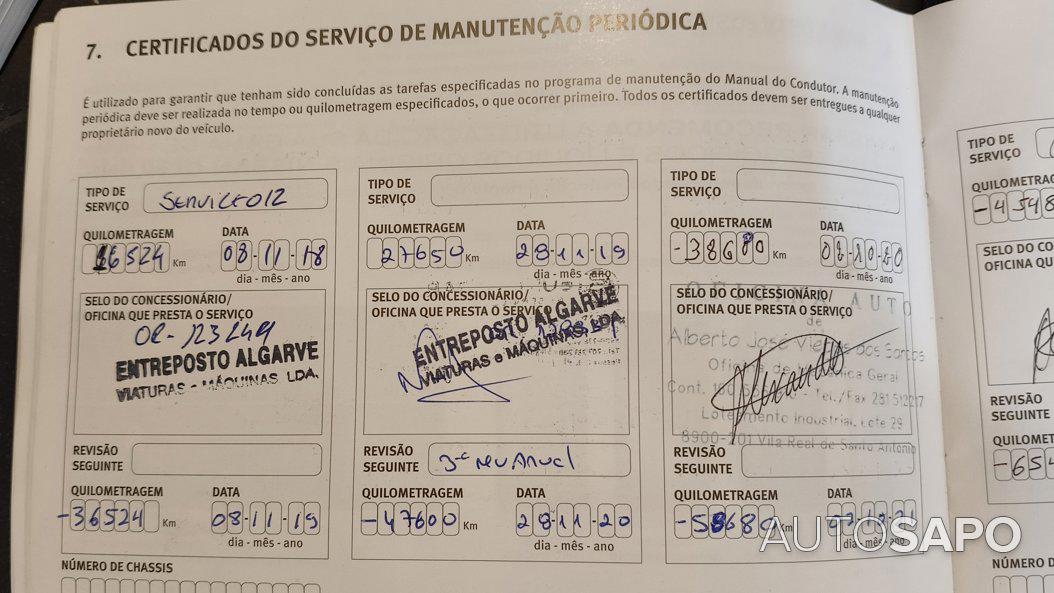 7. CERTIFICADOS DO SERVIÇO DE MANUTENÇÃO PERIÓDICA
É utilizado para garantir que tenham sido concluídas as tarefas especificadas no programa de manutenção do Manual do Condutor. A manutenção
periódica deve ser realizada no tempo ou quilometragem especificados, o que ocorrer primeiro. Todos os certificados devem ser entregues a qualquer
proprietário novo do veículo.
TIPO DE
SERVIÇO
QUILOMETRAGEM DATA
16524 Km 08-11-18
dia - mês - ano
SELO DO CONCESSIONÁRIO/
OFICINA QUE PRESTA O SERVIÇO
OR-123249
ENTREPOSTO ALGARVE
VIATURAS e MÁQUINAS LDA.
REVISÃO
SEGUINTE
QUILOMETRAGEM DATA
-36524 Km 08-11-19
dia - mês - ano
NÚMERO DE CHASSIS
TIPO DE
SERVIÇO
QUILOMETRAGEM DATA
27650 Km 29-11-19
dia - mês - ano
SELO DO CONCESSIONÁRIO/
OFICINA QUE PRESTA O SERVIÇO
ENTREPOSTO ALGARVE
VIATURAS e MÁQUINAS, LDA.
REVISÃO
SEGUINTE
QUILOMETRAGEM DATA
-47600 Km 29-11-20
dia - mês - ano
TIPO DE
SERVIÇO
QUILOMETRAGEM DATA
-38680 Km
dia - mês - ano
SELO DO CONCESSIONÁRIO/
OFICINA QUE PRESTA O SERVIÇO
AUTO
de
Alberto José dos Santos
Geral
Cont. Tel./Fax 281512217
Loteamento Industrial, Lote 29
8900- Vila Real de Santo António
REVISÃO
SEGUINTE
QUILOMETRAGEM DATA
-58680 Km
dia - mês - ano
TIPO DE
SERVIÇO
-4548
SELO DO
OFICINA
REVISÃO
SEGUINTE
-654
NÚMERO D
AUTOSAPO